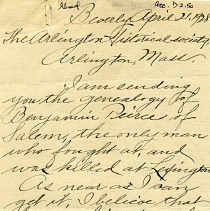 Beverly April 21, 1938
The Arlington Historical Society
Arlington, Mass.
I am sending
you the genealogy of
Benjamin Pierce of
Salem, the only man
who fought at, and
was killed at Lexington
As near as I can
get it, I believe that